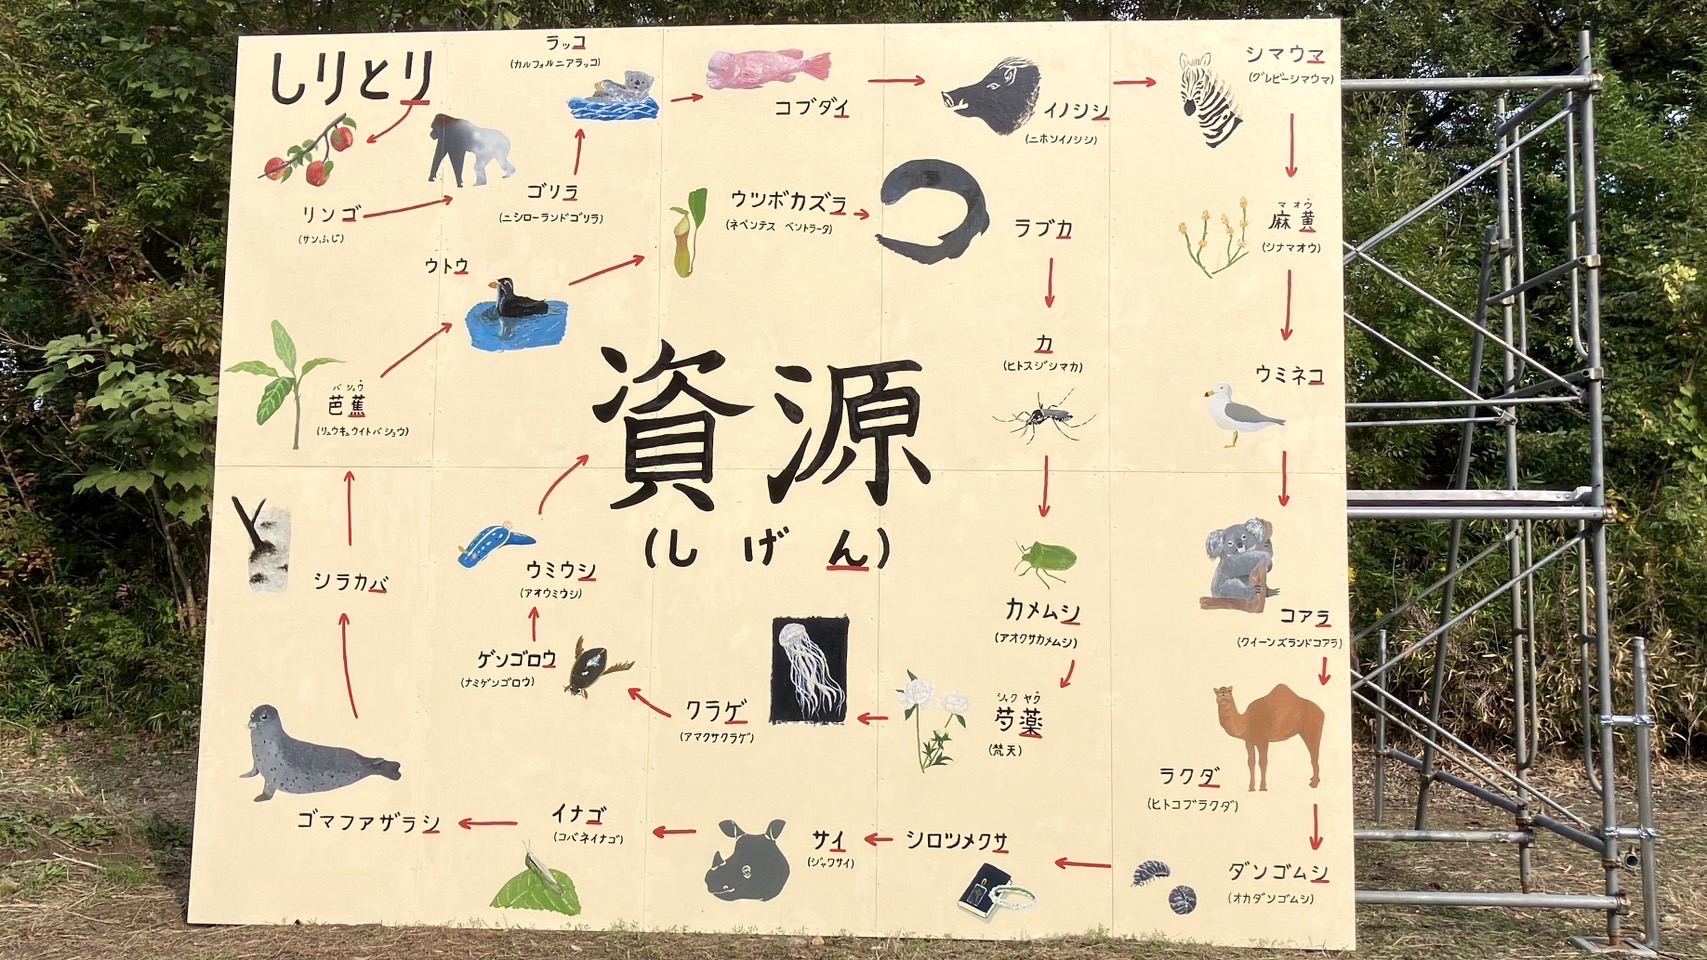 しりとり
リンゴ
(サンふじ)
ゴリラ
(ニシローランドゴリラ)
ラッコ
(カルフォルニアラッコ)
コブダイ
イノシシ
(ニホンイノシシ)
シマウマ
(グレビーシマウマ)
マオウ
麻黄
(シナマオウ)
ウミネコ
コアラ
(クイーンズランドコアラ)
ラクダ
(ヒトコブラクダ)
ダンゴムシ
(オカダンゴムシ)
シロツメクサ
サイ
(ジャワサイ)
イナゴ
(コバネイナゴ)
ゴマフアザラシ
シラカバ
バショウ
芭蕉
(リュウキュウイトバショウ)
ウトウ
ウツボカズラ
(ネペンテス ベントラータ)
ラブカ
カ
(ヒトスジシマカ)
カメムシ
(アオクサカメムシ)
シャクヤク
芍薬
(梵天)
クラゲ
(アマクサクラゲ)
ゲンゴロウ
(ナミゲンゴロウ)
ウミウシ
(アオウミウシ)
資源
(しげん)